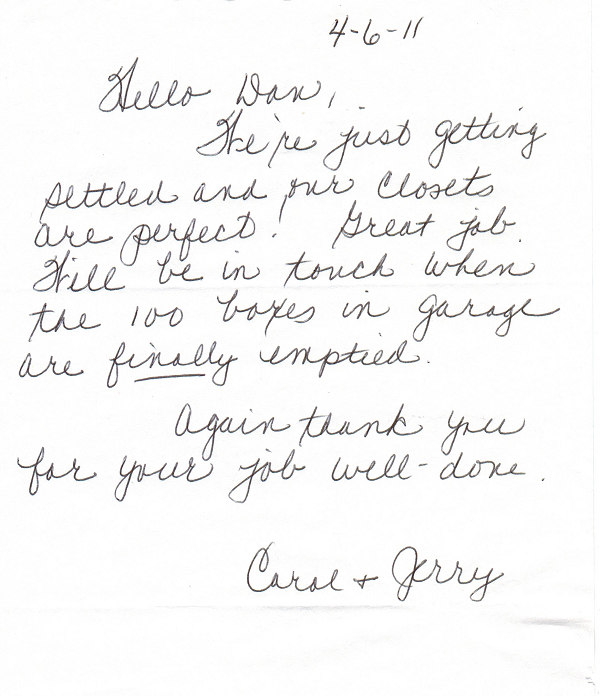 4-6-11
Hello Dan,
We're just getting
settled and our closets
are perfect! Great job.
Will be in touch when
the 100 boxes in garage
are finally emptied.
Again thank you
for your job well-done.
Carol + Jerry